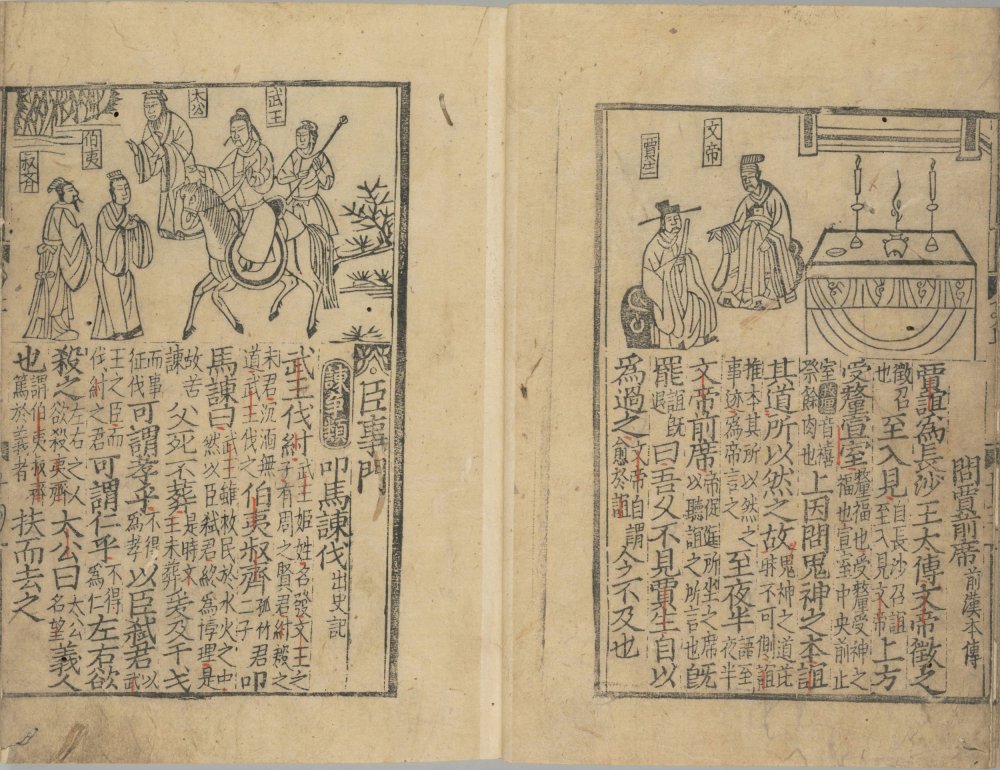 文帝
賈生
問賈前席 前漢本傳
賈誼爲長沙王太傅文帝徵之
徵召也至入見自長沙召誼至入見文帝上方
受釐宣室釐福也受釐受神之福也宣室中央前正
室釐音禧祭餘肉也上因問鬼神之本誼
其道所以然之故鬼神之道茫昧不可測誼
推本其所以然之事跡爲帝言之至夜半語至夜半
文帝前席帝促近所坐之席以聽誼之所言也旣
罷誼旣罷退曰吾久不見賈生自以
爲過之文帝自謂愈於誼今不及也
武王
太公
伯夷
叔齊
臣事門
諫爭類 叩馬諫伐 出史記
武王伐紂武王姬姓名發文王之子有周之賢君紂殷之
末君沉湎無道武王伐之伯夷叔齊孤竹君二子叩
馬諫曰武王雖救民於水火之中然以臣弑君終爲悖理是
故苦諫父死不葬是時文王未葬爰及干戈
而事征伐可謂孝乎不得以爲孝以臣弑君武
王之臣而伐紂之君可謂仁乎不得爲仁左右欲
殺之左右之以欲殺夷齊太公曰太公名望義人
也謂伯夷叔齊篤於義者扶而去之